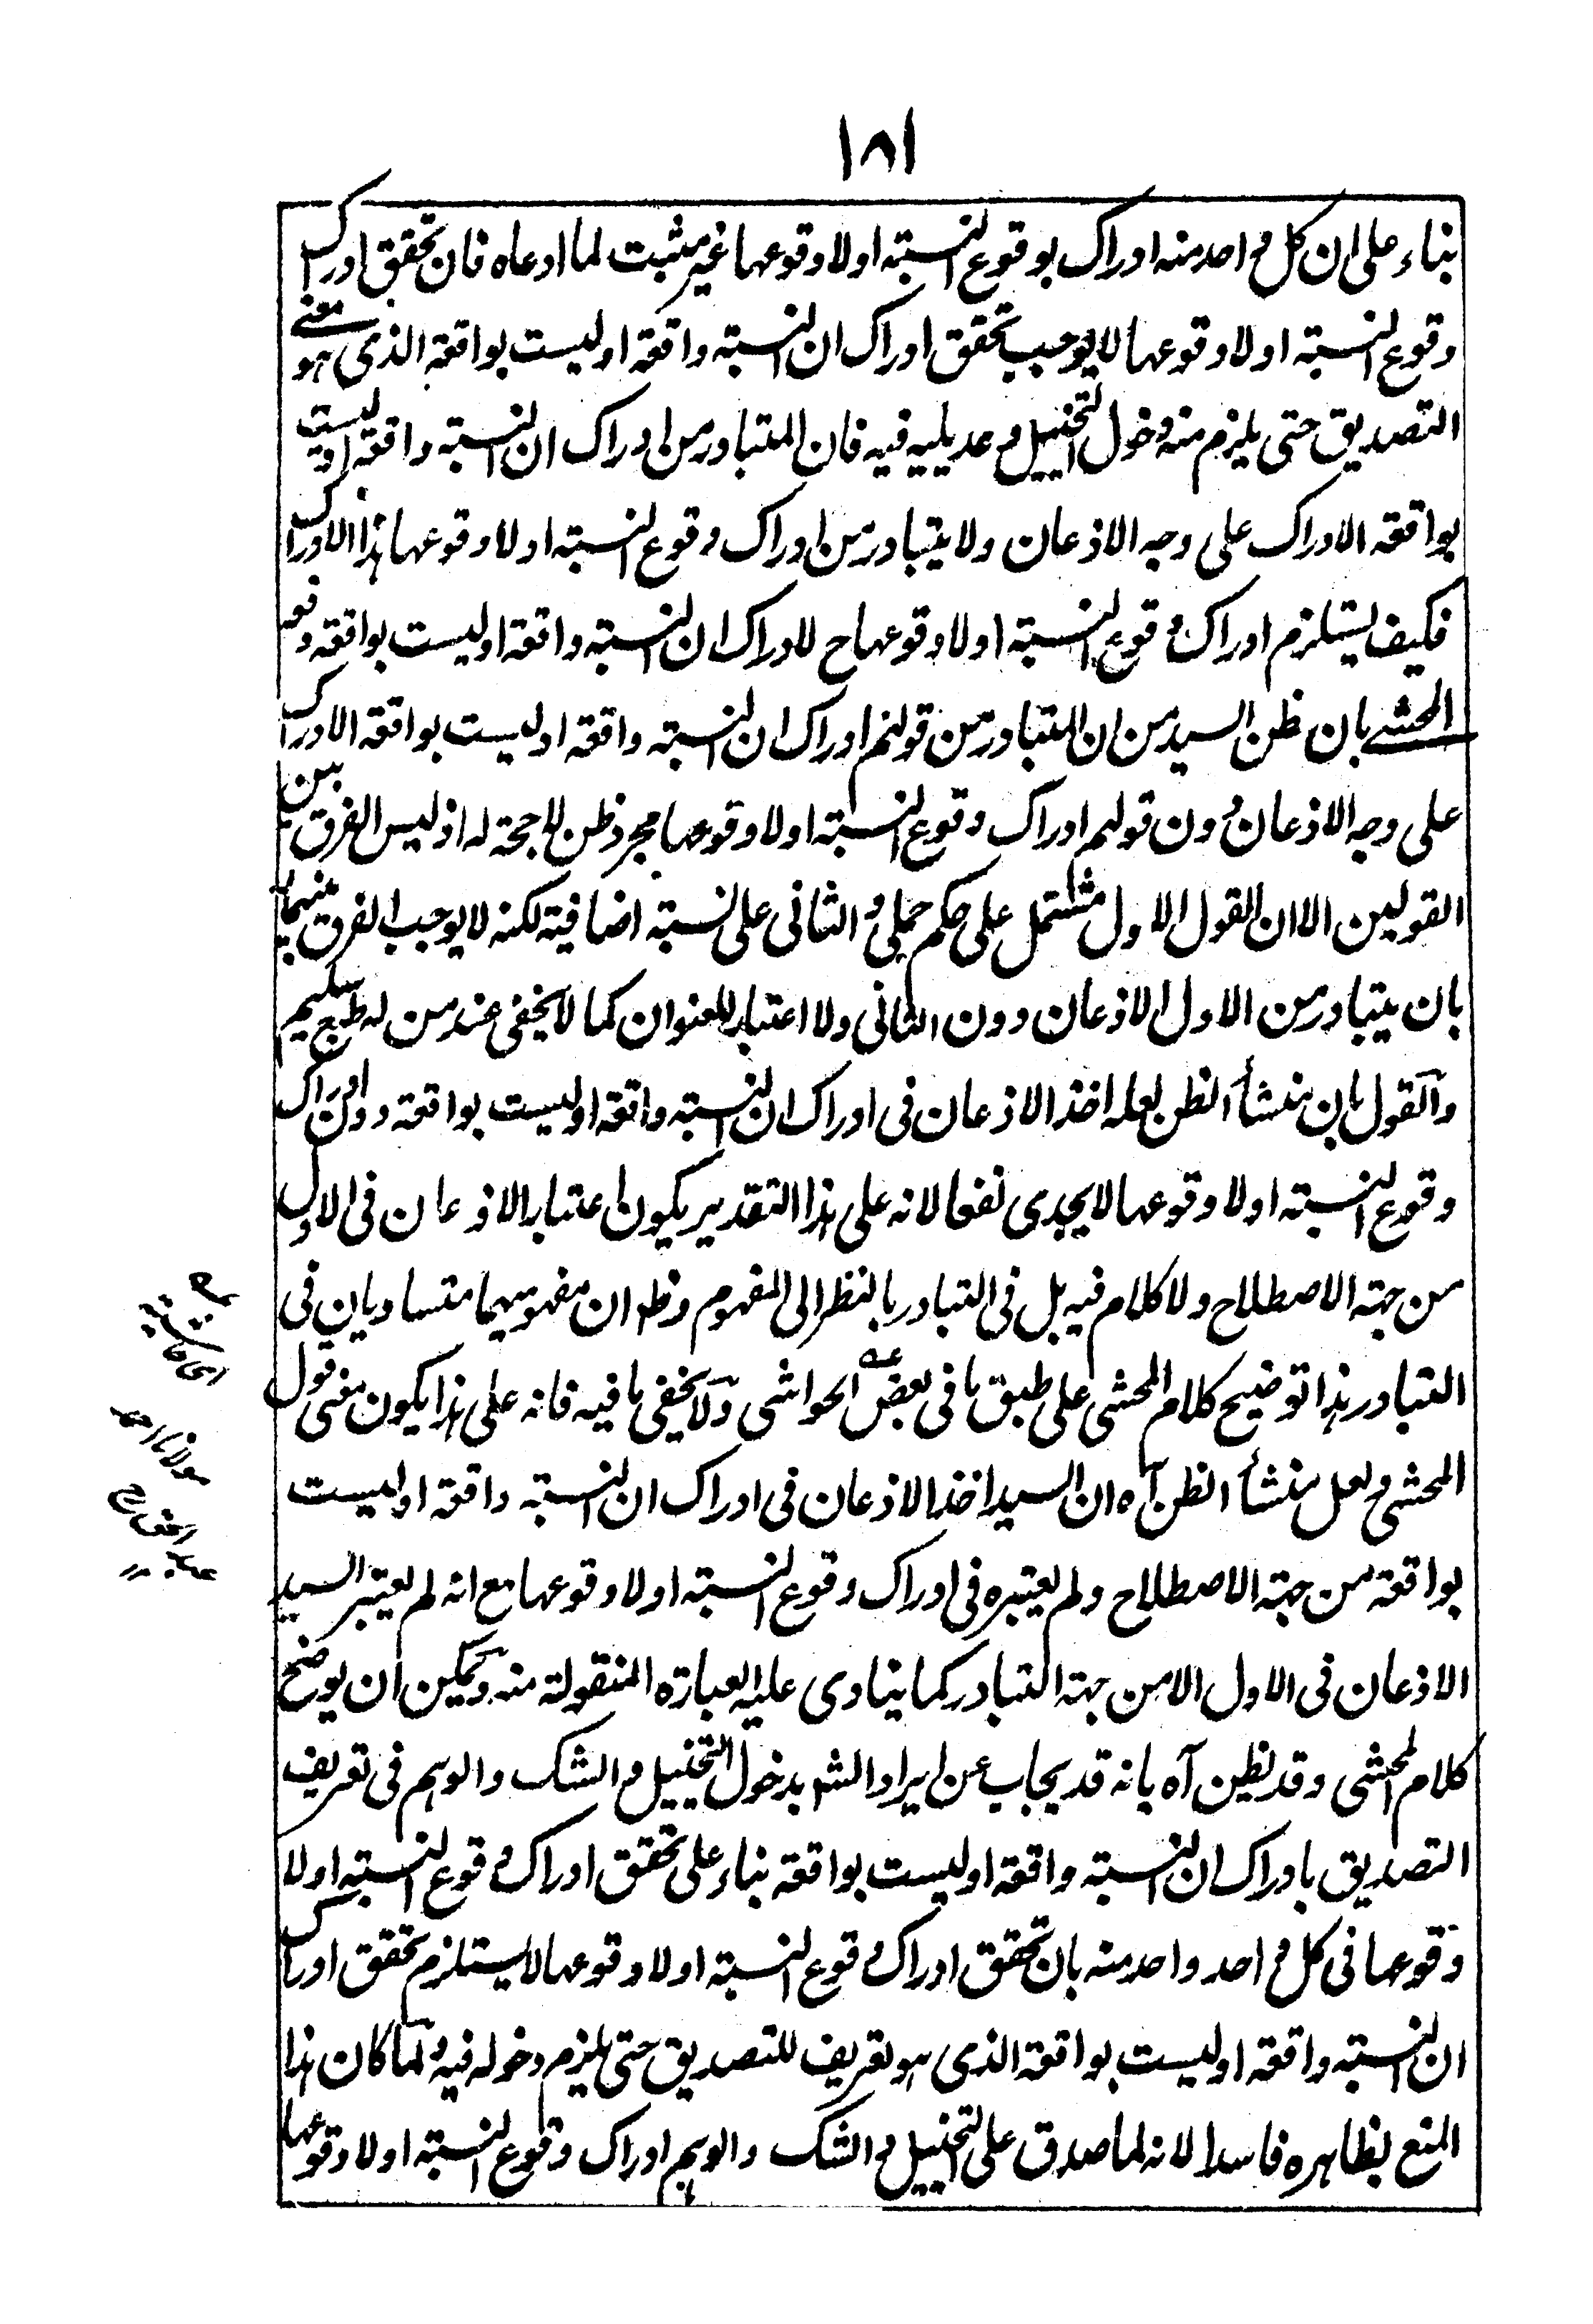 ١٨١
بناء على ان كل واحد منه ادراك بوقوع النسبته اولا وقوعها غير مثبت لما ادعاه فان تحقق ادراك
وقوع النسبته اولا وقوعها لا يوجب تحقق ادراك ان النسبته واقعة او ليست بواقعة الذى هو معنے
التصديق حتى يلزم منه دخول التخييل وعديليه فيه فان المتبادر من ادراك ان النسبته واقعة او ليست
بواقعة الادراك على وجه الاذعان ولا يتبادر من ادراك وقوع النسبته اولا وقوعها هذا الادراك
فكيف يستلزم ادراك وقوع النسبته اولا وقوعها ح لادراك ان النسبته واقعة او ليست بواقعة دفعه
المحشے بان ظن السيد من ان المتبادر من قولهم ادراك ان النسبته واقعة او ليست بواقعة الادراك
على وجه الاذعان دون قولهم ادراك وقوع النسبته اولا وقوعها مجرد ظن لا حجة له اذ ليس الفرق بين
القولين الا ان القول الاول مشتمل على حكم حملى والثانى على نسبته اضافية لكنه لا يوجب الفرق بينهما
بان يتبادر من الاول الاذعان دون الثانى ولا اعتبار للعنوان كما لا يخفى عند من له طبع سليم
والقول بان منشأ الظن لعله اخذ الاذعان فى ادراك ان النسبته واقعة او ليست بواقعة دون ادراك
وقوع النسبته اولا وقوعها لا يجدى نفعا لانه على هذا التقدير يكون اعتبار الاذعان فى الاول
من جهة الاصطلاح ولا كلام فيه بل فى التبادر بالنظر الى المفهوم وظ ان مفهوميهما متساويان فى
التبادر هذا توضيح كلام المحشى على طبق ما فى بعض الحواشى ولا يخفى ما فيه فانه على هذا يكون معنى قول
المحشى ولعل منشأ الظن آه ان السيد اخذ الاذعان فى ادراك ان النسبته واقعة او ليست
بواقعة من جهة الاصطلاح ولم يعتبره فى ادراك وقوع النسبته اولا وقوعها مع انه لم يعتبر السيد
الاذعان فى الاول الا من جهة التبادر كما ينادى عليه العبارة المنقولة منه ويمكن ان يوضح
كلام المحشى وقد يظن آه بانه قد يجاب عن ايراد الش بدخول التخييل والشك والوهم فى تعريف
التصديق بادراك ان النسبته واقعة او ليست بواقعة بناء على تحقق ادراك وقوع النسبته اولا
وقوعها فى كل واحد واحد منه بان تحقق ادراك وقوع النسبته اولا وقوعها لا يستلزم تحقق ادراك
ان النسبته واقعة او ليست بواقعة الذى هو تعريف للتصديق حتى يلزم دخوله فيه ولما كان هذا
المنع بظاهره فاسدا لانه لما صدق على التخييل والشك والوهم ادراك وقوع النسبته اولا وقوعها
اى حاشية
مولانا احمد
عبد الحق رح